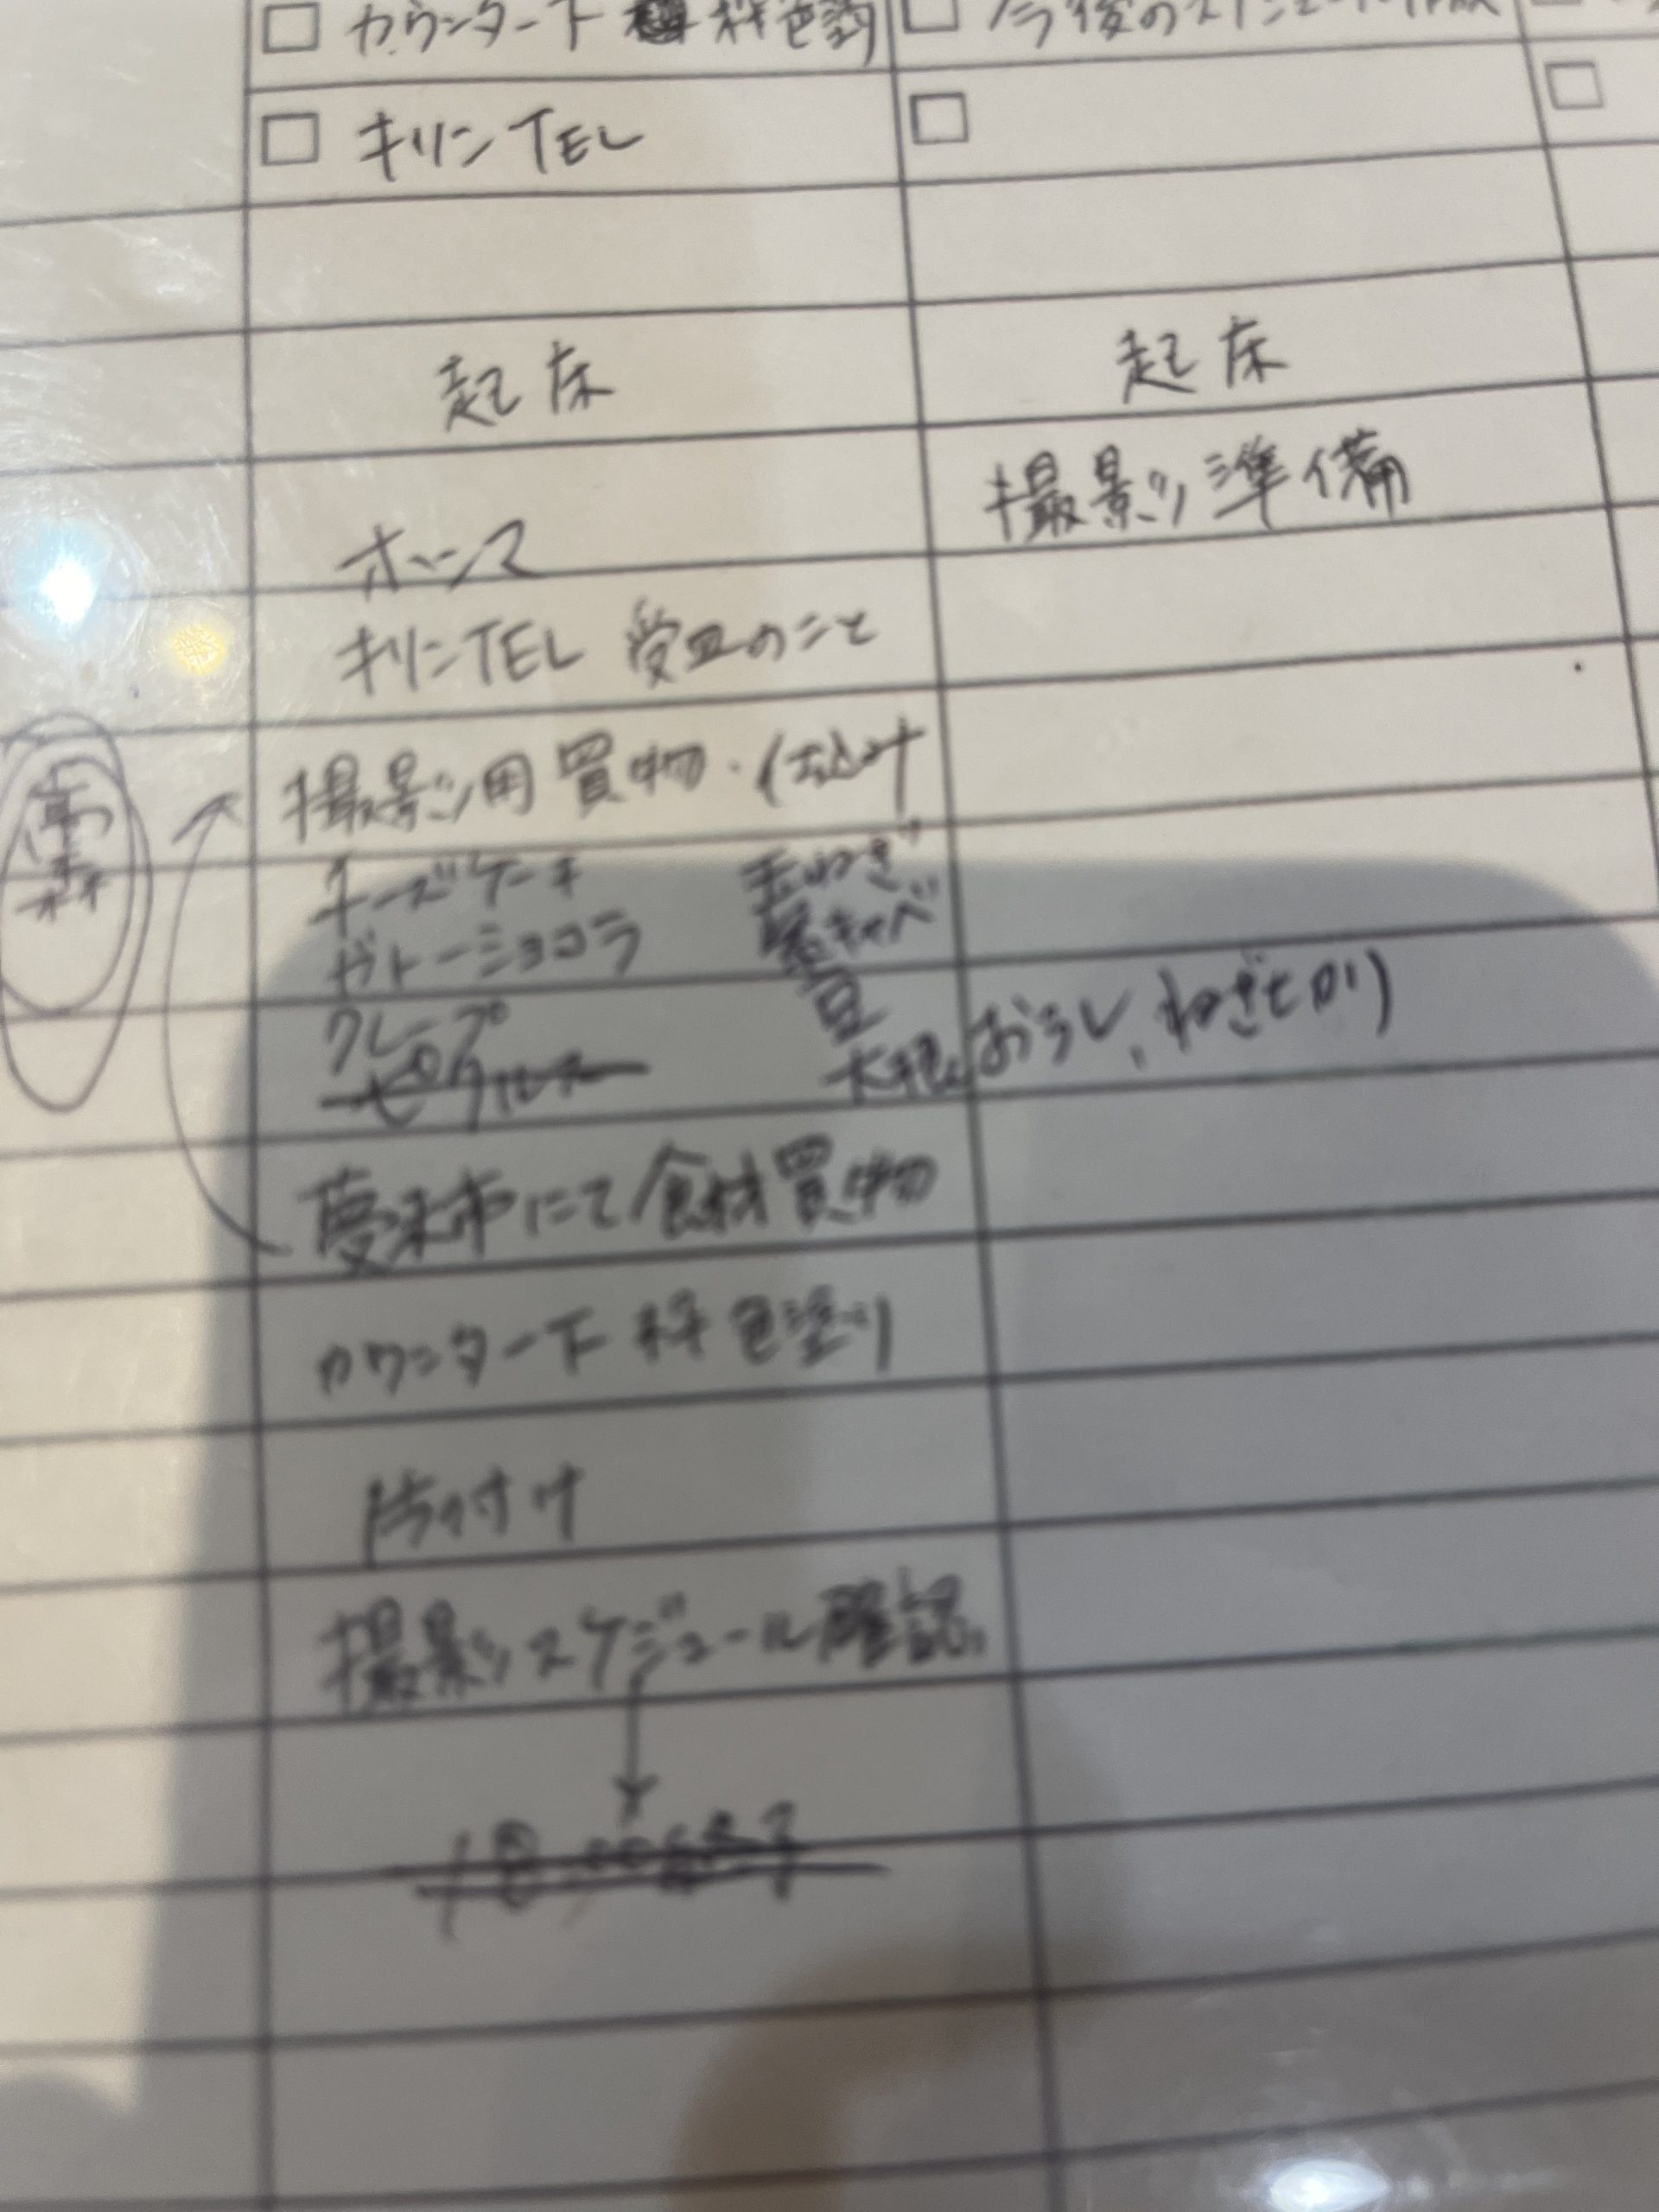 カウンター下 枠色塗り
今後のスケジュール作成
キリンTEL
起床
起床
撮影準備
キリンTEL 受皿のこと
撮影用買物・仕込み
チーズケーキ
ガトーショコラ
クレープ
ピクルス
玉ねぎ
キャベ
豆
大根おろし、ねぎとかり
夢来市にて食材買物
カウンター下 枠色塗り
片付け
撮影スケジュール確認